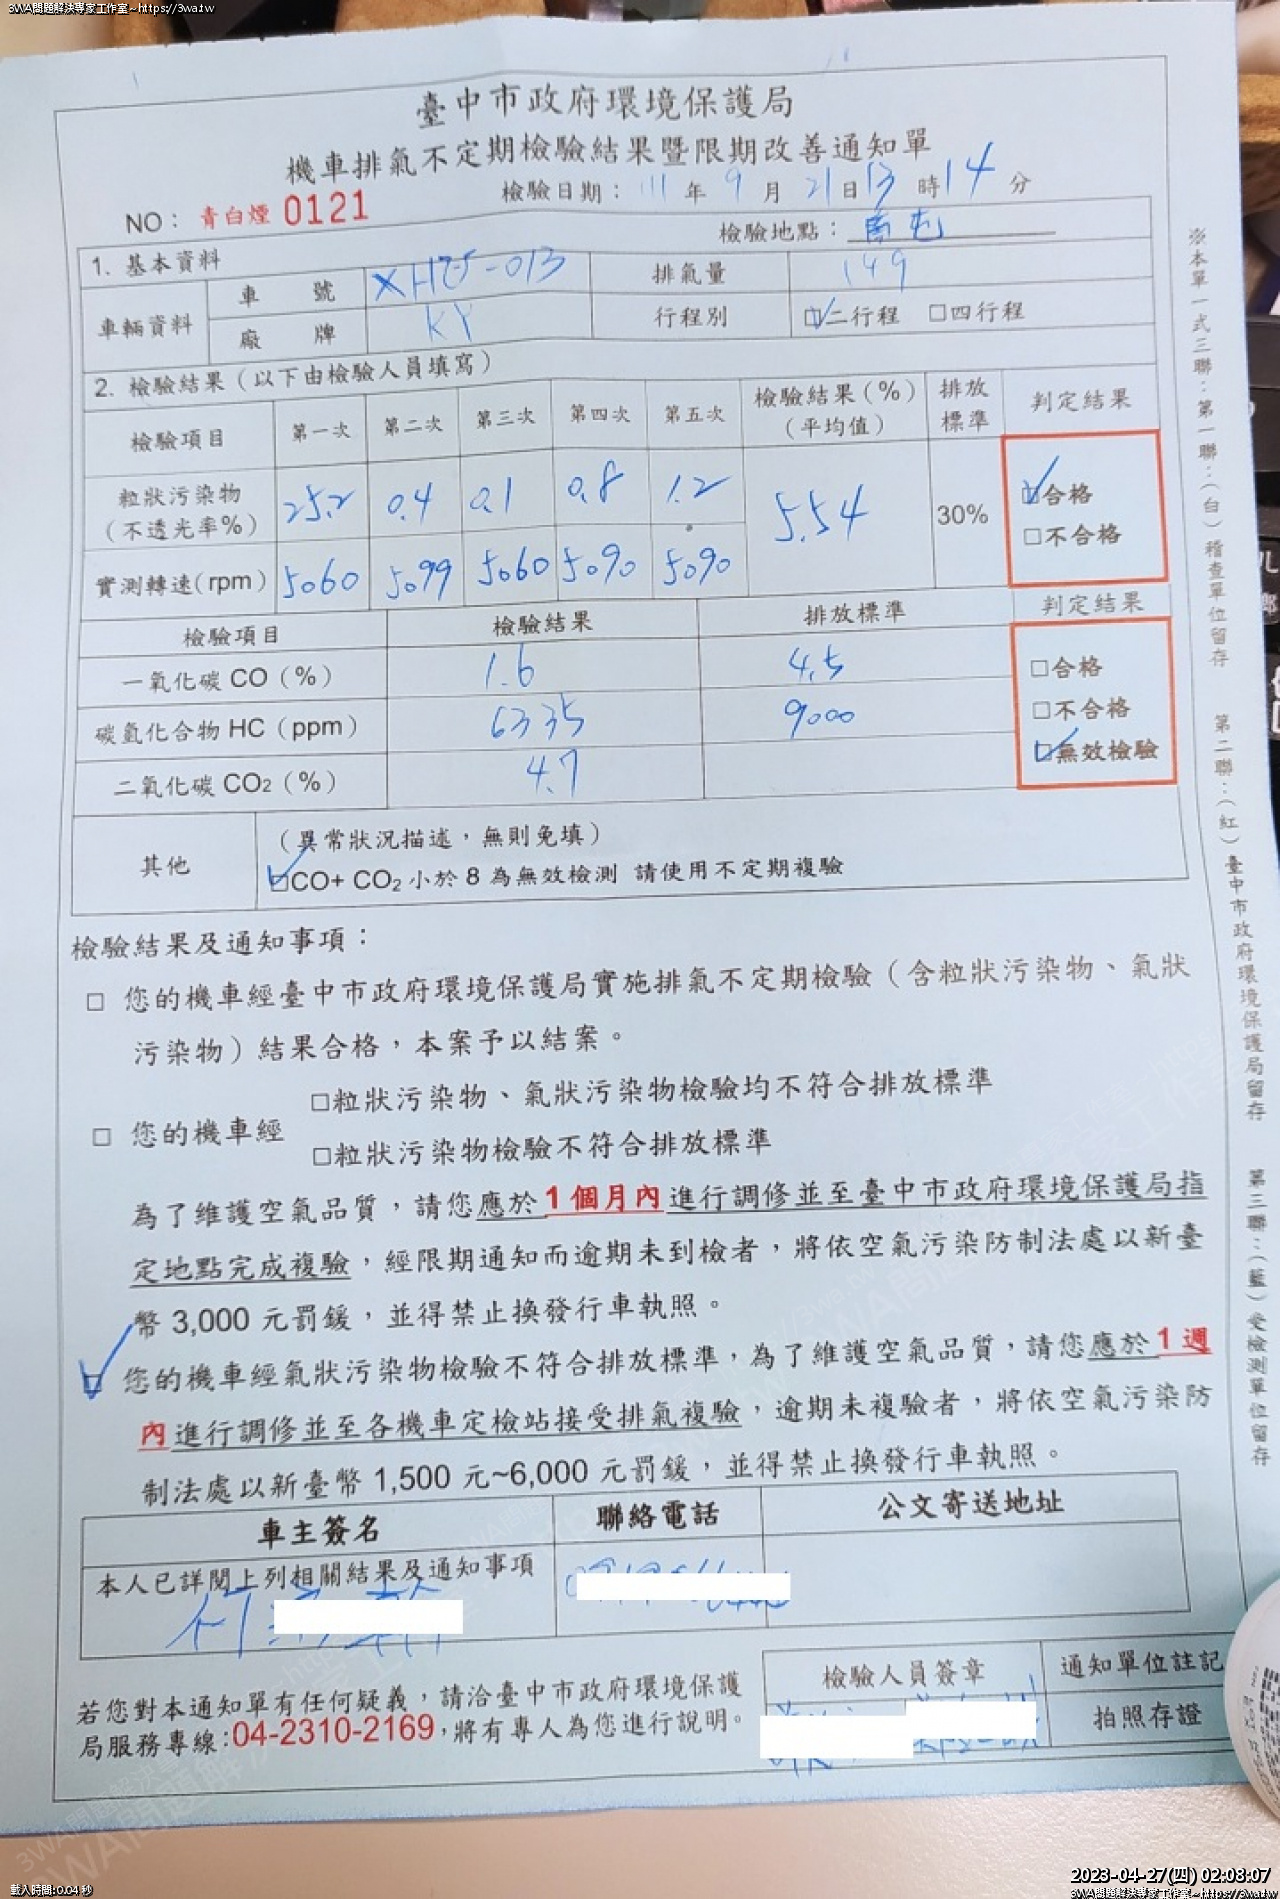 3WA問題解決專家工作室~https://3wa.tw
臺中市政府環境保護局
機車排氣不定期檢驗結果暨限期改善通知單
檢驗日期：111年9月21日13時14分
NO：青白煙 0121
檢驗地點：南屯
1. 基本資料
車輛資料 車號 排氣量 149
廠牌 KY 行程別 ☑二行程 □四行程
2. 檢驗結果（以下由檢驗人員填寫）
檢驗項目 第一次 第二次 第三次 第四次 第五次 檢驗結果（%）（平均值） 排放標準 判定結果
粒狀污染物（不透光率%） 25.2 0.4 0.1 0.8 1.2 5.54 30% ☑合格
□不合格
實測轉速(rpm) 5060 5099 5060 5090 5090
檢驗項目 檢驗結果 排放標準 判定結果
一氧化碳 CO（%） 1.6 4.5 □合格
碳氫化合物 HC（ppm） 6335 9000 □不合格
二氧化碳 CO2（%） 4.7 ☑無效檢驗
其他 （異常狀況描述，無則免填）
☑CO+ CO2 小於 8 為無效檢測 請使用不定期複驗
檢驗結果及通知事項：
□ 您的機車經臺中市政府環境保護局實施排氣不定期檢驗（含粒狀污染物、氣狀
污染物）結果合格，本案予以結案。
□粒狀污染物、氣狀污染物檢驗均不符合排放標準
□ 您的機車經
□粒狀污染物檢驗不符合排放標準
為了維護空氣品質，請您應於 1 個月內進行調修並至臺中市政府環境保護局指
定地點完成複驗，經限期通知而逾期未到檢者，將依空氣污染防制法處以新臺
幣 3,000 元罰鍰，並得禁止換發行車執照。
☑ 您的機車經氣狀污染物檢驗不符合排放標準，為了維護空氣品質，請您應於 1 週
內進行調修並至各機車定檢站接受排氣複驗，逾期未複驗者，將依空氣污染防
制法處以新臺幣 1,500 元~6,000 元罰鍰，並得禁止換發行車執照。
車主簽名 聯絡電話 公文寄送地址
本人已詳閱上列相關結果及通知事項
若您對本通知單有任何疑義，請洽臺中市政府環境保護
局服務專線:04-2310-2169，將有專人為您進行說明。
檢驗人員簽章 通知單位註記
拍照存證
※本單一式三聯：第一聯：（白）稽查單位留存 第二聯：（紅）臺中市政府環境保護局留存 第三聯：（藍）受檢測單位留存
2023-04-27(四) 02:08:07
載入時間:0.04 秒
3WA問題解決專家工作室~https://3wa.tw